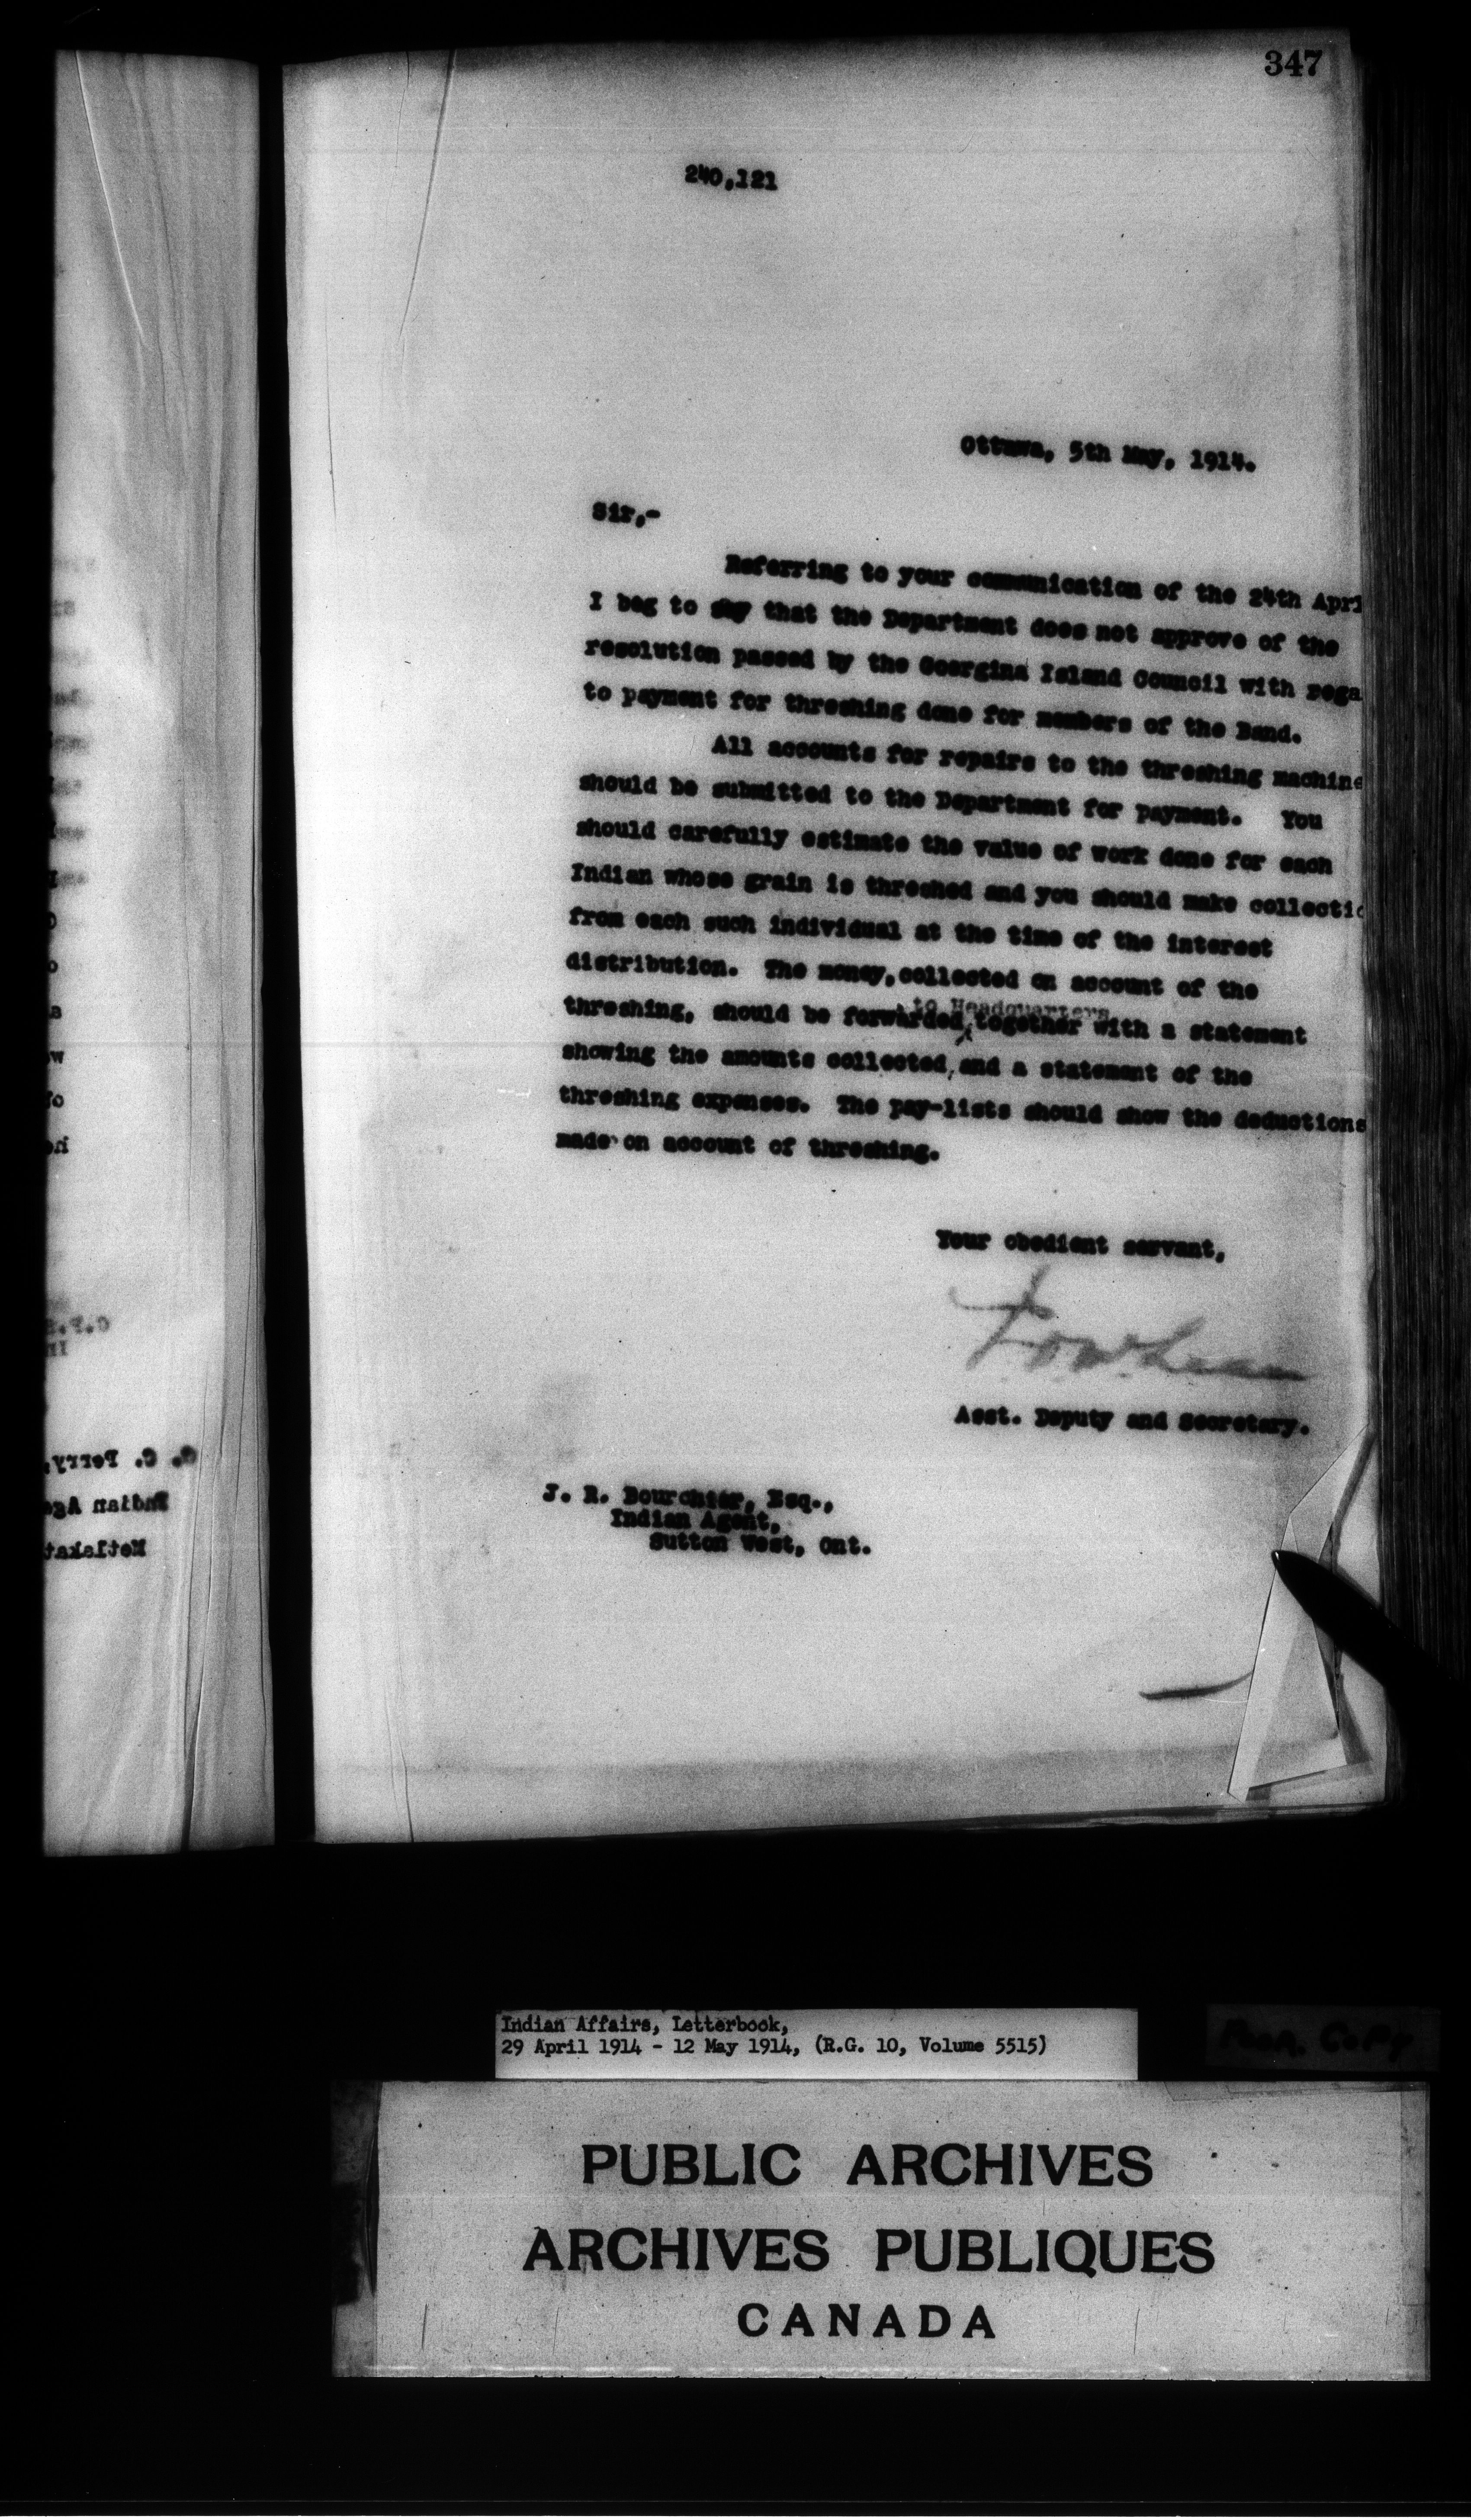 347
240,121
Ottawa, 5th May, 1914.
Sir,-
Referring to your communication of the 24th Apri
I beg to say that the Department does not approve of the
resolution passed by the Georgina Island Council with rega
to payment for threshing done for members of the Band.
All accounts for repairs to the threshing machine
should be submitted to the Department for payment. You
should carefully estimate the value of work done for each
Indian whose grain is threshed and you should make collectio
from each such individual at the time of the interest
distribution. The money, collected on account of the
to Headquarters
threshing, should be forwarded, together with a statement
showing the amounts collected, and a statement of the
threshing expenses. The pay-lists should show the deductions
made on account of threshing.
Your obedient servant,
Asst. Deputy and Secretary.
J. R. Bourchier, Esq.,
Indian Agent,
Sutton West, Ont.
C. C. Perry,
Indian Age
Metlakat
Indian Affairs, Letterbook,
29 April 1914 - 12 May 1914, (R.G. 10, Volume 5515)
PUBLIC ARCHIVES
ARCHIVES PUBLIQUES
CANADA